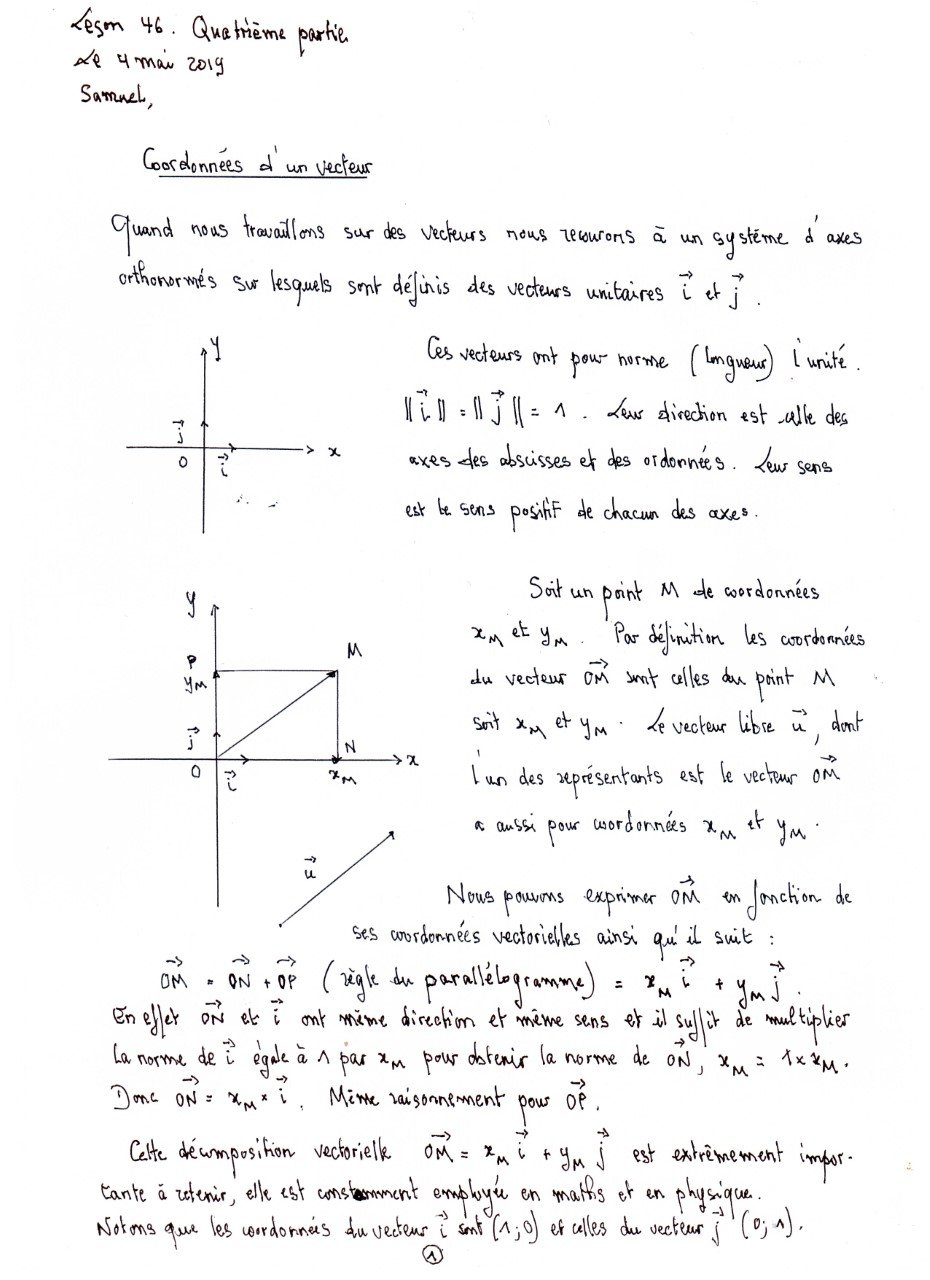 Leçon 46. Quatrième partie.
Le 4 mai 2019
Samuel,
Coordonnées d'un vecteur
Quand nous travaillons sur des vecteurs nous recourons à un système d'axes
orthonormés sur lesquels sont définis des vecteurs unitaires i⃗ et j⃗.
y
j⃗
O
i⃗
x
Ces vecteurs ont pour norme (longueur) l'unité.
||i⃗|| = ||j⃗|| = 1. Leur direction est celle des
axes des abscisses et des ordonnées. Leur sens
est le sens positif de chacun des axes.
y
P
yM
M
j⃗
O
i⃗
N
xM
x
u⃗
Soit un point M de coordonnées
xM et yM. Par définition les coordonnées
du vecteur OM⃗ sont celles du point M
soit xM et yM. Le vecteur libre u⃗, dont
l'un des représentants est le vecteur OM⃗
a aussi pour coordonnées xM et yM.
Nous pouvons exprimer OM⃗ en fonction de
ses coordonnées vectorielles ainsi qu'il suit :
OM⃗ = ON⃗ + OP⃗ (règle du parallélogramme) = xM i⃗ + yM j⃗.
En effet ON⃗ et i⃗ ont même direction et même sens et il suffit de multiplier
la norme de i⃗ égale à 1 par xM pour obtenir la norme de ON⃗, xM = 1 × xM.
Donc ON⃗ = xM × i⃗. Même raisonnement pour OP⃗.
Cette décomposition vectorielle OM⃗ = xM i⃗ + yM j⃗ est extrêmement impor-
tante à retenir, elle est constamment employée en maths et en physique.
Notons que les coordonnées du vecteur i⃗ sont (1;0) et celles du vecteur j⃗ (0;1).
1